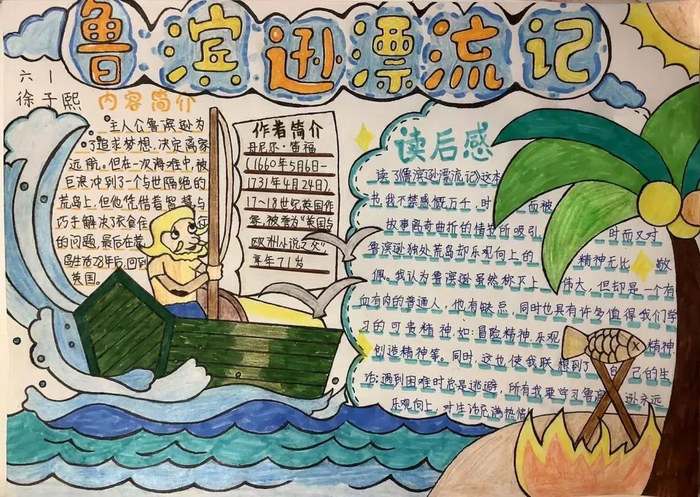 鲁滨逊漂流记
六1
徐子熙
内容简介
主人公鲁滨逊为
了追求梦想,决定离家
远航。但在一次海难中,被
巨浪冲到了一个与世隔绝的
荒岛上,但他凭借着智慧与
巧手解决了衣食住
的问题,最后在荒
岛生活28年后,回到
英国。
作者简介
丹尼尔·笛福
(1660年5月6日-
1731年4月24日),
17~18世纪英国作
家,被誉为“英国与
欧洲小说之父”
享年71岁
读后感
读了《鲁滨逊漂流记》这本
书我不禁感慨万千,时 而被
故事离奇曲折的情节所吸引 时而又对
鲁滨逊独处荒岛却乐观向上的 精神无比 敬
佩。我认为鲁滨逊虽然称不上 伟大,但却是一个有
血有肉的普通人,他有缺点,同时也具有许多值得我们学
习的可贵精神,如:冒险精神,乐观 精神
创造精神等。同时,这也使我联想到了 自己的生
活:遇到困难时总是逃避,所有我要学习鲁滨 逊永远
乐观向上,对生活充满热情